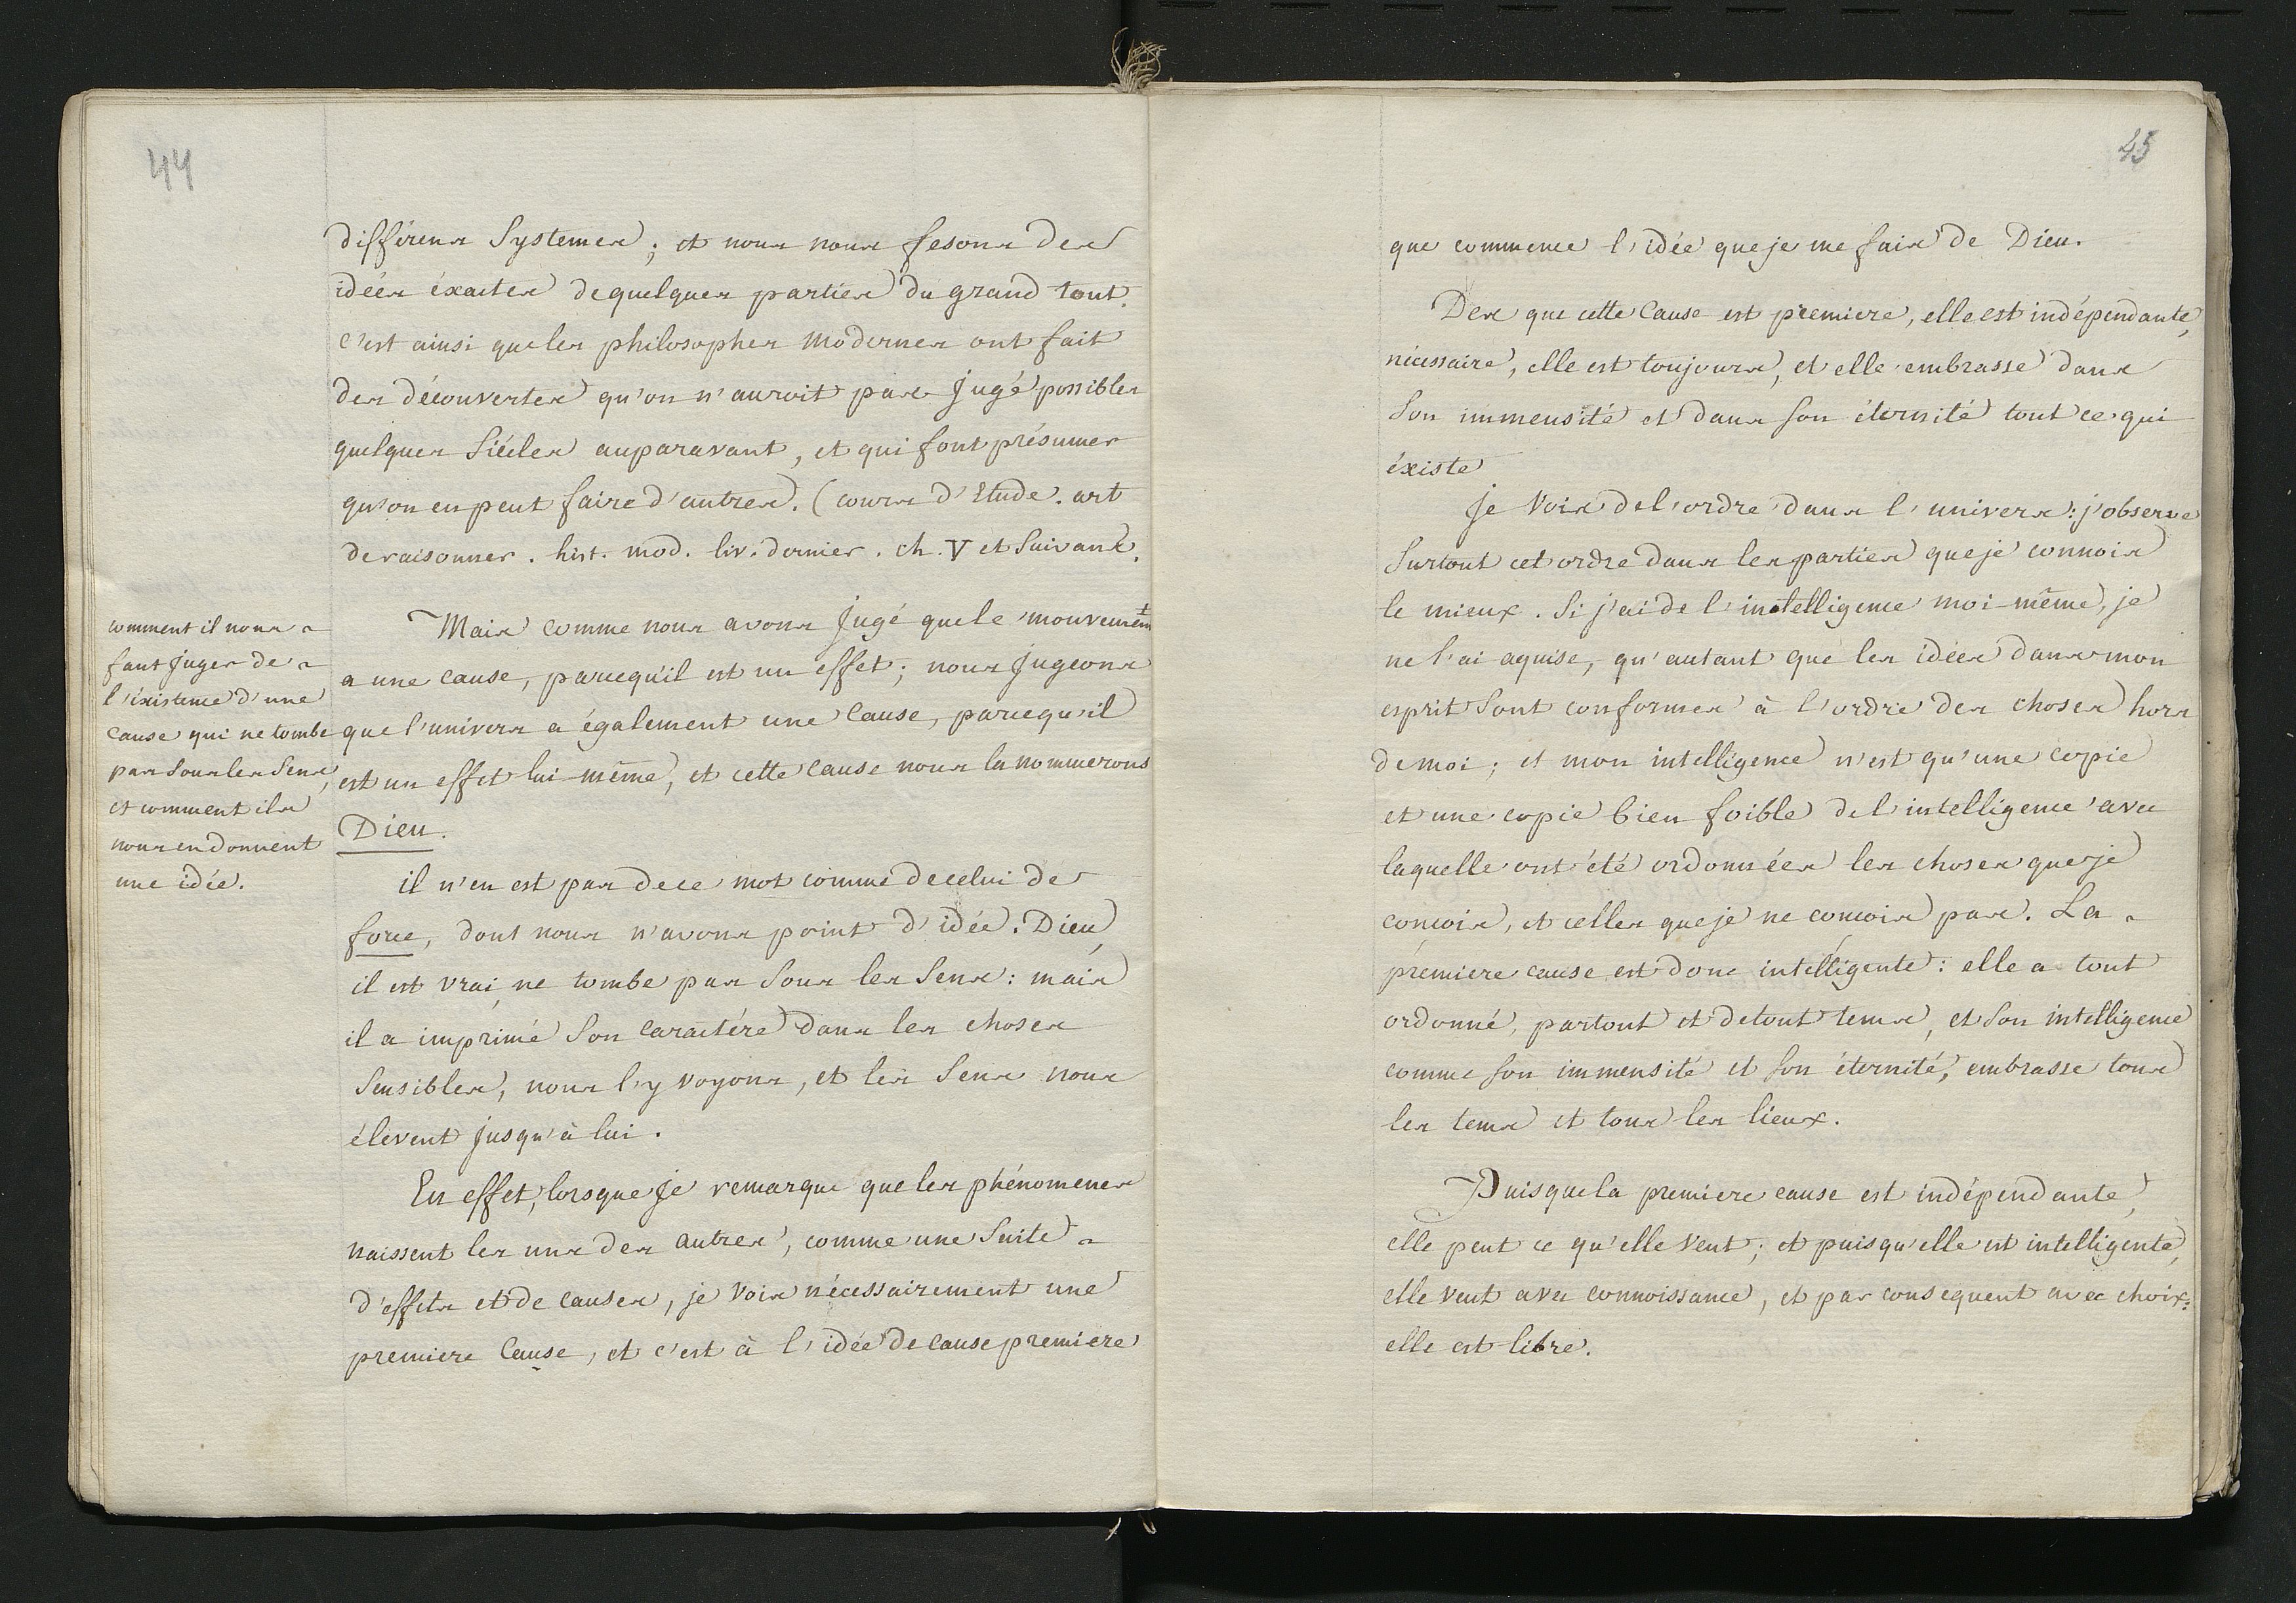 44
différens Systemes; et nous nous fesons des
idées éxactes de quelques parties du grand tout.
c'est ainsi que les philosophes modernes ont fait
des découvertes qu'on n'auroit pas jugé possibles
quelques Siécles auparavant, et qui font présumer
qu'on en peut faire d'autres. (cours d'Etude. art
de raisonner. hist. mod. liv. dernier. ch. V et Suivans.
comment il nous
faut juger de
l'éxistence d'une
cause qui ne tombe
pas sous les sens,
et comment ils
nous en donnent
une idée.
Mais comme nous avons jugé que le mouvemt
a une cause, parcequ'il est un effet; nous jugeons
que l'univers a également une cause, parcequ'il
est un effet lui-même, et cette cause nous la nommerons
Dieu.
il n'en est pas de ce mot comme de celui de
force, dont nous n'avons point d'idée. Dieu,
il est vrai, ne tombe pas sous les sens: mais
il a imprimé Son caractére dans les choses
sensibles, nous l'y voyons, et les sens nous
élevent jusqu'à lui.
En effet, lorsque je remarque que les phénomenes
naissent les uns des autres, comme une Suite
d'effets et de causes, je vois nécessairement une
premiere cause, et c'est à l'idée de cause premiere
45
que commence l'idée que je me fais de Dieu.
Des que cette cause est premiere, elle est indépendante,
nécessaire, elle est toujours, et elle embrasse dans
Son immensité et dans son éternité tout ce qui
éxiste
je vois de l'ordre dans l'univers: j'observe
surtout cet ordre dans les parties que je connois
le mieux. Si j'ai de l'intelligence moi-même, je
ne l'ai aquise, qu'autant que les idées dans mon
esprit sont conformes à l'ordre des choses hors
de moi; et mon intelligence n'est qu'une copie
et une copie bien foible de l'intelligence avec
laquelle ont été ordonnées les choses que je
concois, et celles que je ne concois pas. La
premiere cause est donc intelligente: elle a tout
ordonné, partout et de tout tems, et Son intelligence
comme son immensité et son éternité, embrasse tous
les tems et tous les lieux.
Puisque la premiere cause est indépendante,
elle peut ce qu'elle veut; et puisqu'elle est intelligente,
elle veut avec connoissance, et par consequent avec choix:
elle est libre.